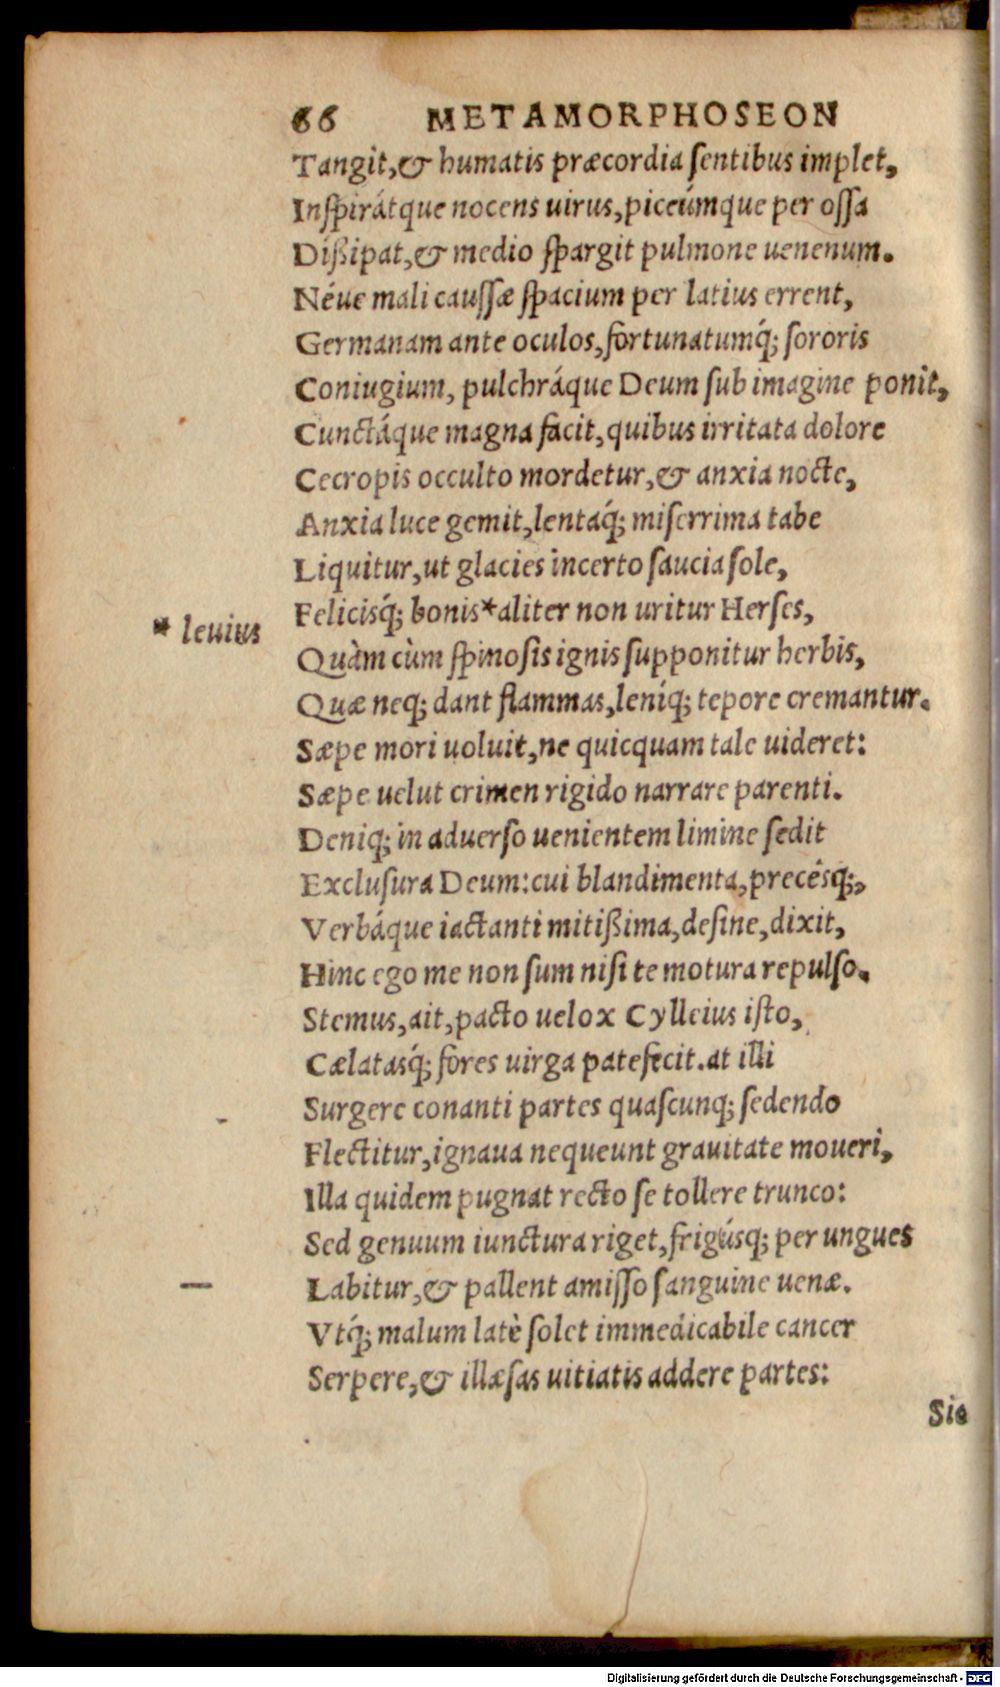 66 METAMORPHOSEON
Tangit,& humatis præcordia ſentibus implet,
Inſpirátque nocens uirus,piceúmque per oſſa
Dißipat,& medio ſpargit pulmone uenenum.
Néue mali cauſſæ ſpacium per latius errent,
Germanam ante oculos,fortunatumq́; ſororis
Coniugium, pulchráque Deum ſub imagine ponit,
Cunctáque magna facit,quibus irritata dolore
Cecropis occulto mordetur,& anxia nocte,
Anxia luce gemit,lentaq́; miſerrima tabe
Liquitur,ut glacies incerto ſaucia ſole,
Felicisq́; bonis*aliter non uritur Herſes,
* leuius
Quàm cùm ſpinoſis ignis ſupponitur herbis,
Quæ neq; dant flammas,leníq; tepore cremantur.
Sæpe mori uoluit,ne quicquam tale uideret:
Sæpe uelut crimen rigido narrare parenti.
Deniq; in aduerſo uenientem limine ſedit
Excluſura Deum:cui blandimenta,precésq;,
Verbáque iactanti mitißima,deſine,dixit,
Hinc ego me non ſum niſi te motura repulſo.
Stemus,ait,pacto uelox Cylleius iſto,
Cælatasq́; fores uirga patefecit.at illi
Surgere conanti partes quaſcunq; ſedendo
Flectitur,ignaua nequeunt grauitate moueri,
Illa quidem pugnat recto ſe tollere trunco:
Sed genuum iunctura riget,frigúsq; per ungues
Labitur,& pallent amiſſo ſanguine uenæ.
Vtq́; malum latè ſolet immedicabile cancer
Serpere,& illæſas uitiatis addere partes:
Sic
Digitalisierung gefördert durch die Deutsche Forschungsgemeinschaft - DFG